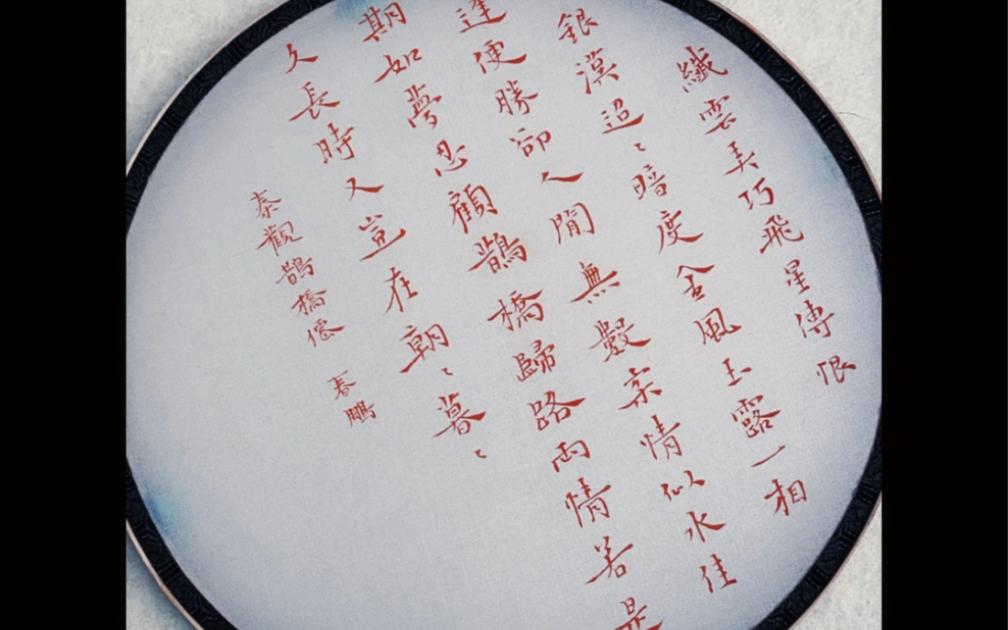 纖雲弄巧飛星傳恨
銀漢迢〻暗度金風玉露一相
逢便勝卻人閒無數柔情似水佳
期如夢忍顧鵲橋歸路兩情若是
久長時又豈在朝〻暮〻
秦觀鵲橋僊 春鵬